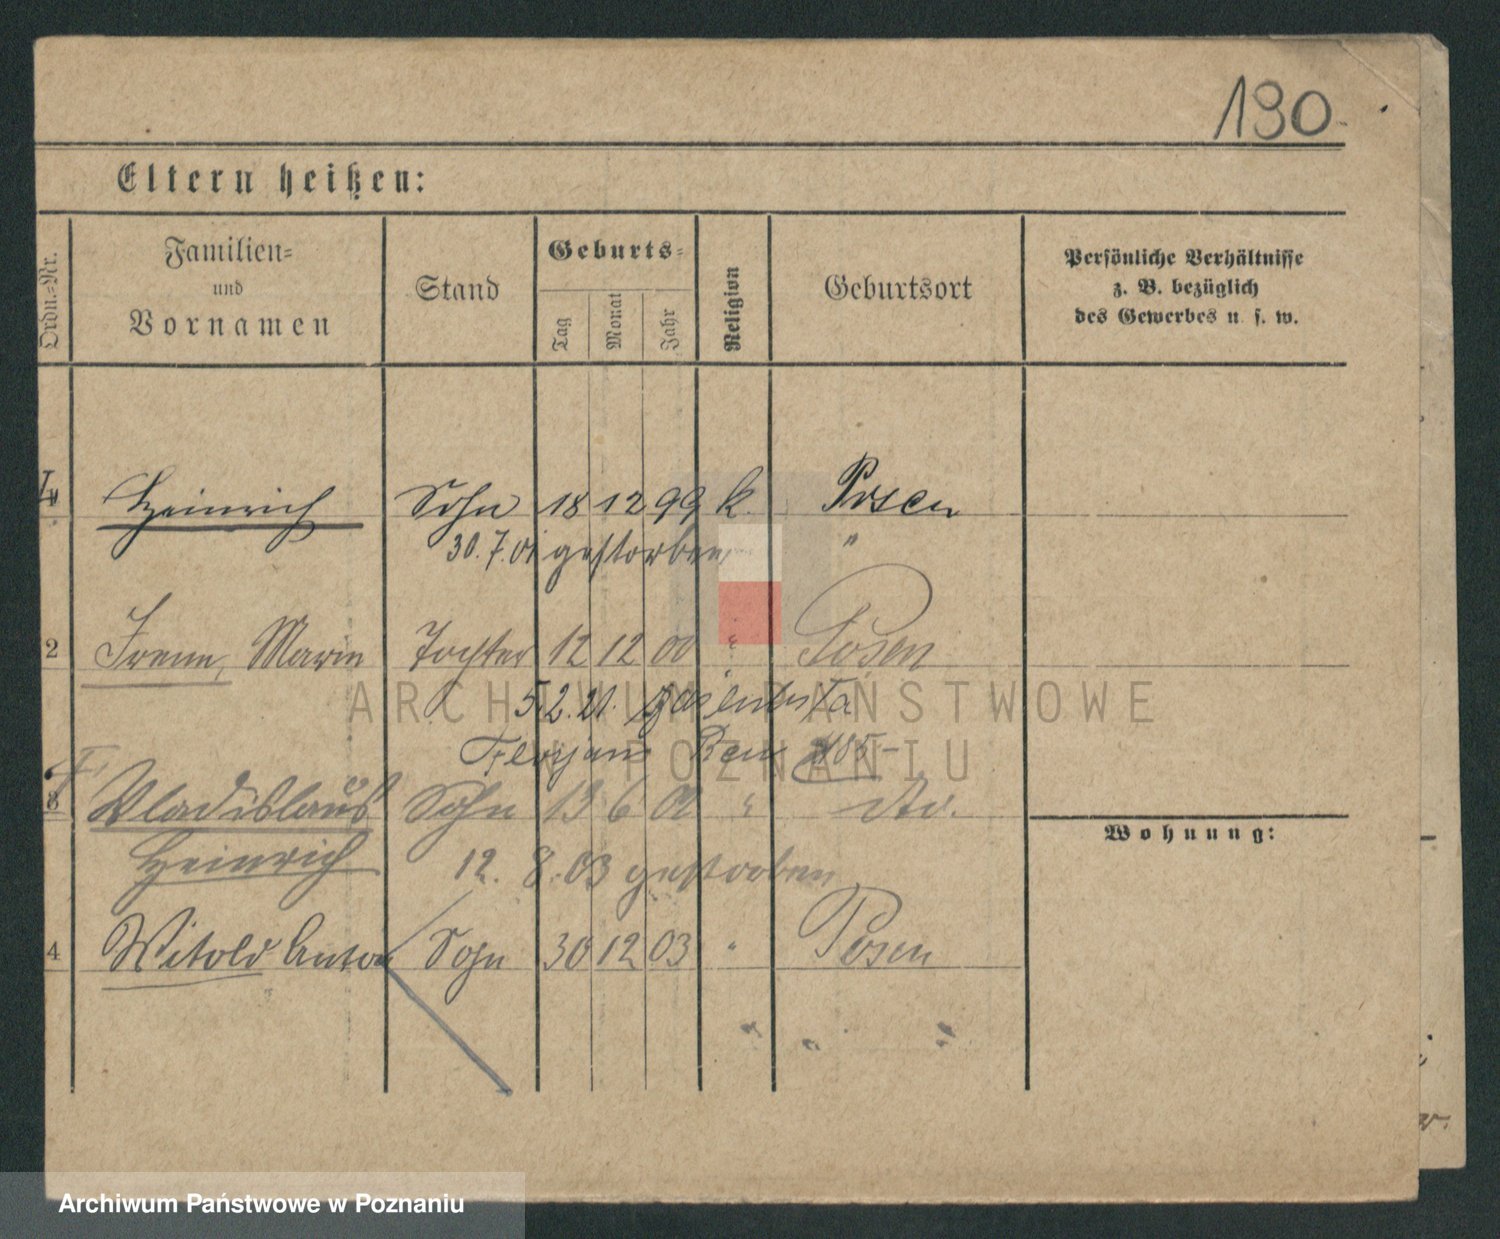 190
Eltern heißen:
Ordn.-Nr.
Familien-
und
Vornamen
Stand
Geburts-
Tag
Monat
Jahr
Religion
Geburtsort
Persönliche Verhältnisse
z. B. bezüglich
des Gewerbes u. s. w.
Heinrich Sohn 18 12 99 k. Posen
30.7.01 gestorben "
2 Irene, Maria Tochter 12 12 00 " Posen
5.2.21. zaślubiła
Florjana
3 Wladislaus Sohn 13 6 02 " dto.
Heinrich 12. 8. 03 gestorben
Wohnung:
4 Witold Anton Sohn 30 12 03 " Posen
ARCHIWUM PAŃSTWOWE
W POZNANIU
Archiwum Państwowe w Poznaniu